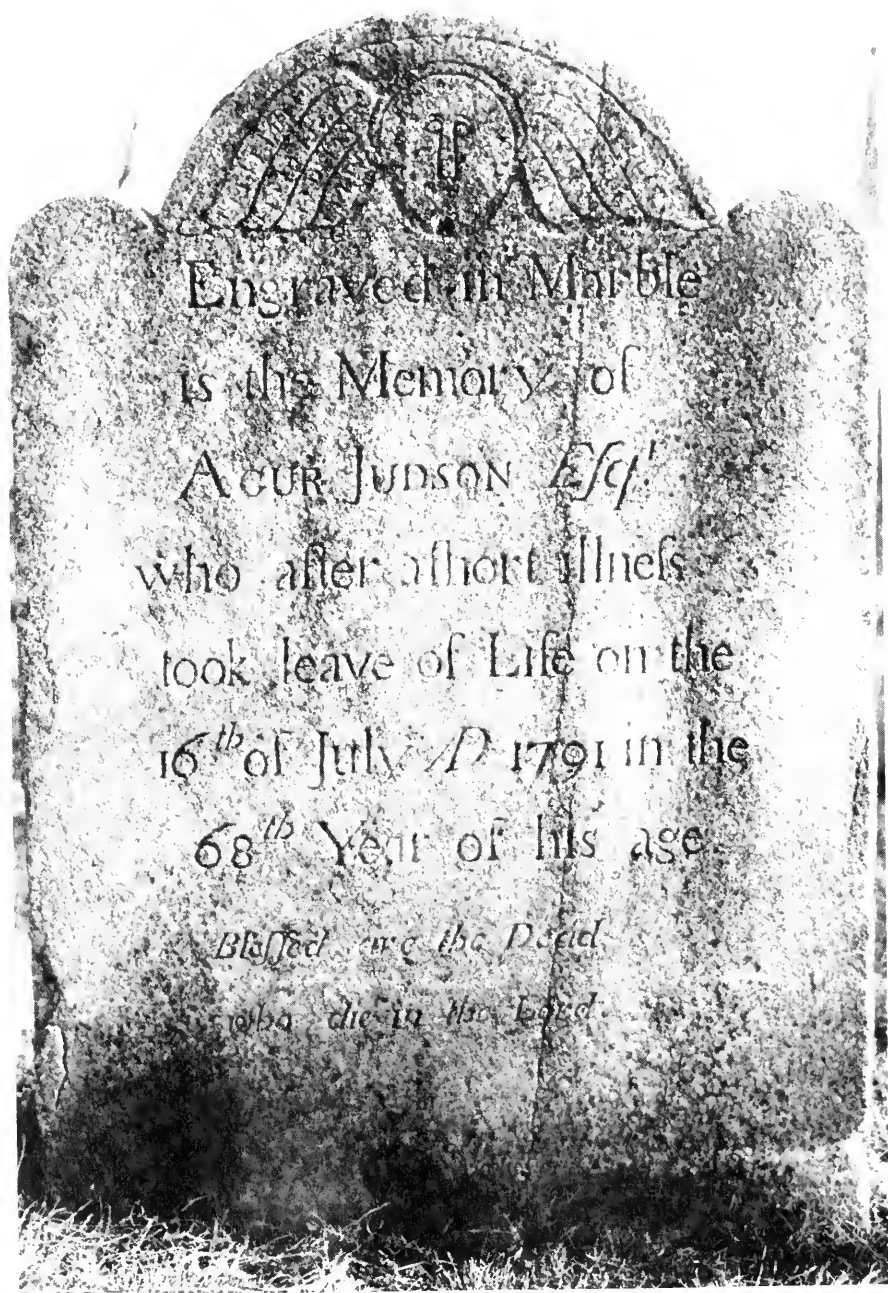 Engraved in Marble
is the Memory of
AGUR JUDSON Eſqʳ.
who after a ſhort illneſs
took leave of Life on the
16th of July AD 1791 in the
68th Year of his age
Bleſſed are the Dead
who die in the Lord